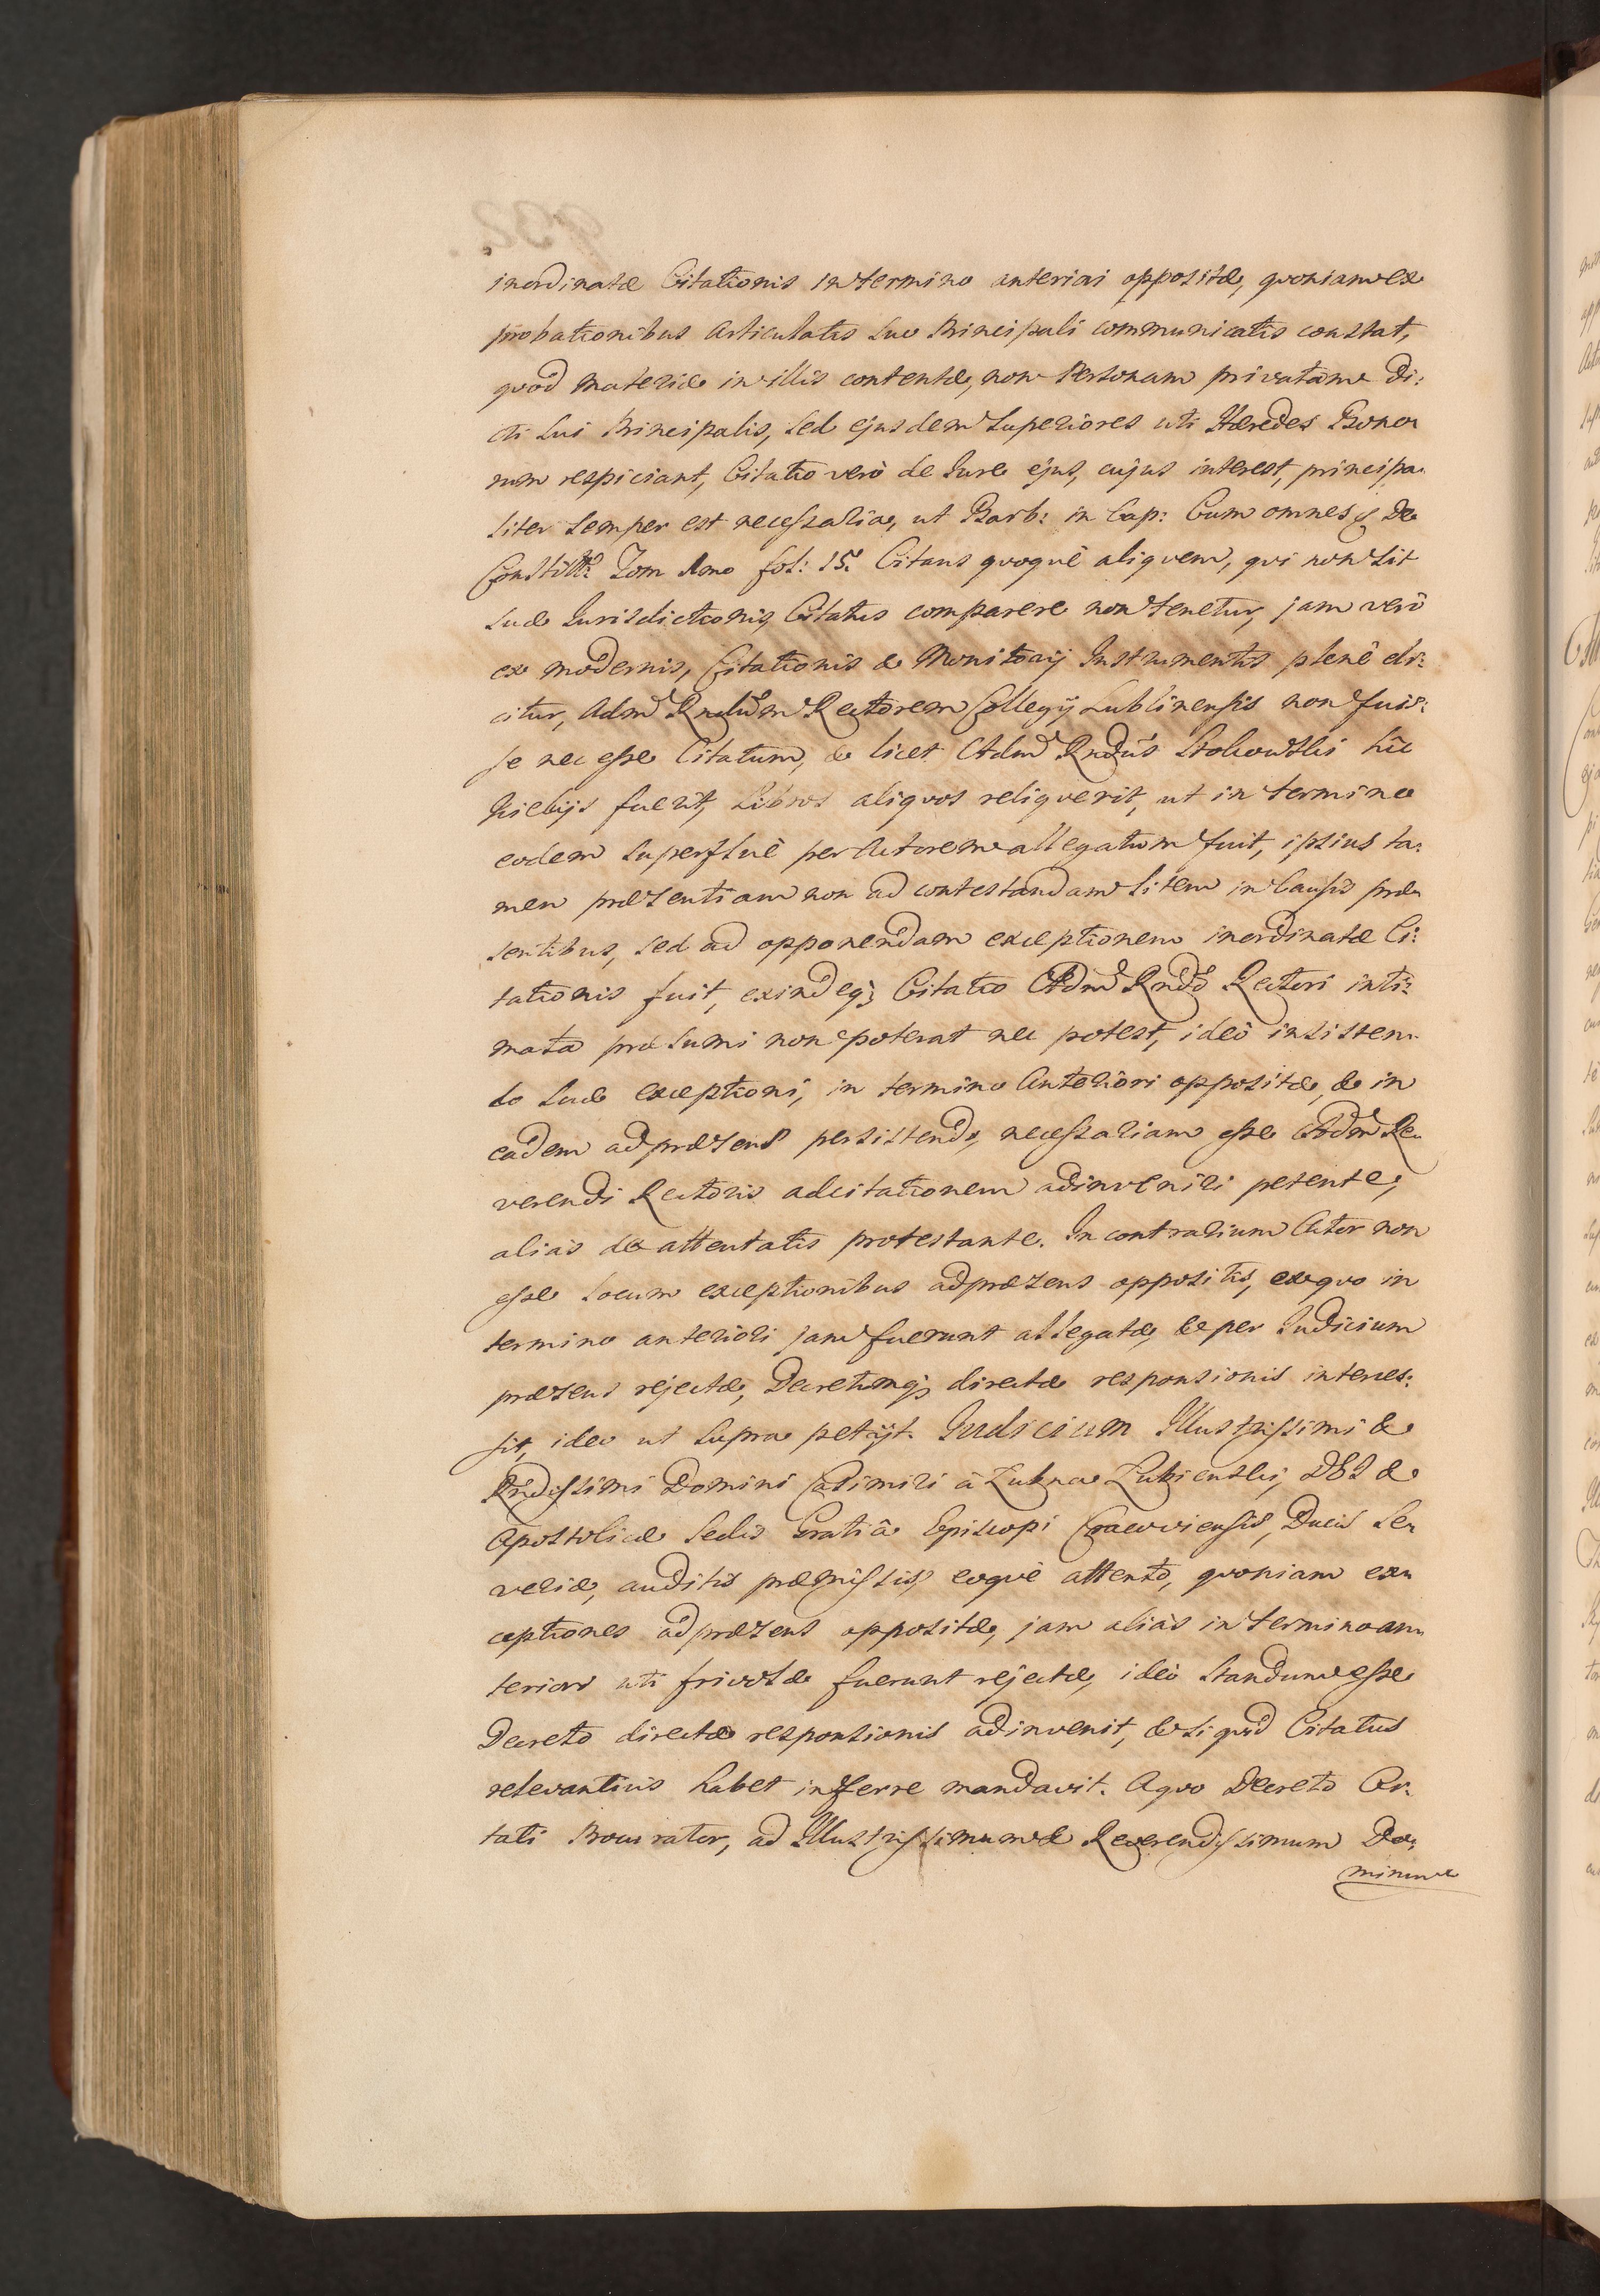 inordinatæ Citationis in termino anteriori oppositæ, quoniam ex
probationibus Articulatis suo Principali communicatis constat,
quod materiæ in illis contentæ, non Personam privatam di:
cti sui Principalis, sed ejusdem Superiores uti Hæredes Bono
rum respiciant, Citatio verò de Jure ejus, cujus interest, principa
liter semper est necessaria, ut Barb: in Cap: Cum omnes De
Constitt: Tom fol: 15. Citans quoquè aliquem, qui non sit
suæ Jurisdictionis, Citatus comparere non tenetur, jam verò
ex modernis, Citationis & Monitorij Instrumentis plenè do:
citur, Adm Rndum Rectorem Collegij Lublinensis non fuis:
se nec esse Citatum, & licet Adm Rndus hic
Kielcijs fuerit, Libros aliquos reliquerit, ut in termino
eodem superfluè per Actorem allegatum fuit, ipsius ta:
men præsentiam non ad contestandam Litem in Causis præ
sentibus, sed ad opponendam exceptionem inordinatæ Ci:
tationis fuit, exindeq; Citatio Adm Rndo Rectori inti:
mata præsumi non poterat nec potest, ideò insisten
do suæ exceptioni, in termino Anteriori oppositæ, & in
eadem ad præsens persistendo, necessariam esse Adm Re
verendi Rectoris adcitationem adinveniri petente,
aliàs de attentatis protestante. In contrarium Actor non
esse locum exceptionibus ad præsens oppositis, ex quo in
termino anteriori jam fuerunt allegatæ, & per Judicium
præsens rejectæ, Decretumq; directæ responsionis interces:
sit, ideo ut supra petijt. Judicium Illustrissimi &
Rndissimi Domini Casimiri à Łubna Łubienski, DEI &
Apostolicæ Sedis Gratiâ Episcopi Cracoviensis, Ducis Se
veriæ, auditis præmissis, eoquè attento, quoniam ex
ceptiones ad præsens oppositæ, jam aliàs in termino an
teriori uti frivolæ fuerunt rejectæ, ideò standum esse
Decreto directæ responsionis adinvenit, & si quid Citatus
relevantius habet inferre mandavit. A quo Decreto Ci
tati Procurator, ad Illustrissimum & Reverendissimum Do:
minum